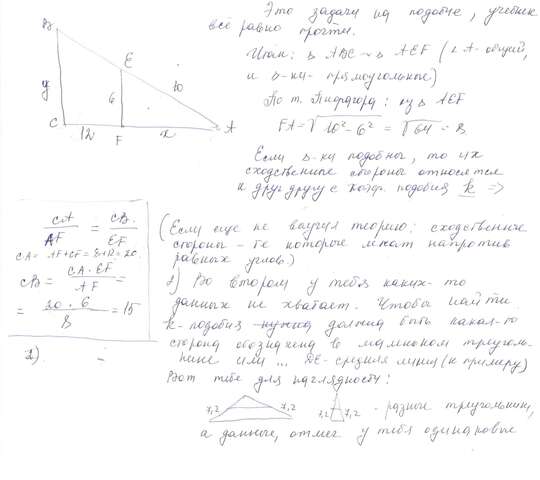 Это задачи на подобие, учебник
всё равно прочти.
Итак: Δ ABC ~ Δ AEF (∠A - общий,
и Δ-ки - прямоугольные)
По т. Пифагора: из Δ AEF
FA = √10² - 6² = √64 = 8
Если Δ-ки подобны, то их
сходственные стороны относятся
к друг другу с коэф. подобия k =>
B
E
y
10
6
C
12
F
x
A
CA/AF = CB/EF
CA = AF + CF = 8 + 12 = 20.
CB = CA · EF / AF =
= 20 · 6 / 8 = 15
2).
(Если еще не выучил теорию: сходственные
стороны - те которые лежат напротив
равных углов.)
2) Во втором у тебя каких-то
данных не хватает. Чтобы найти
k-подобия нужно должна быть какая-то
сторона обозначена в маленьком треуголь-
нике или ... DE - средняя линия (к примеру)
Вот тебе для наглядности:
7,2 7,2 3,2 7,2 - разные треугольники,
а данные, отмеч у тебя одинаковые